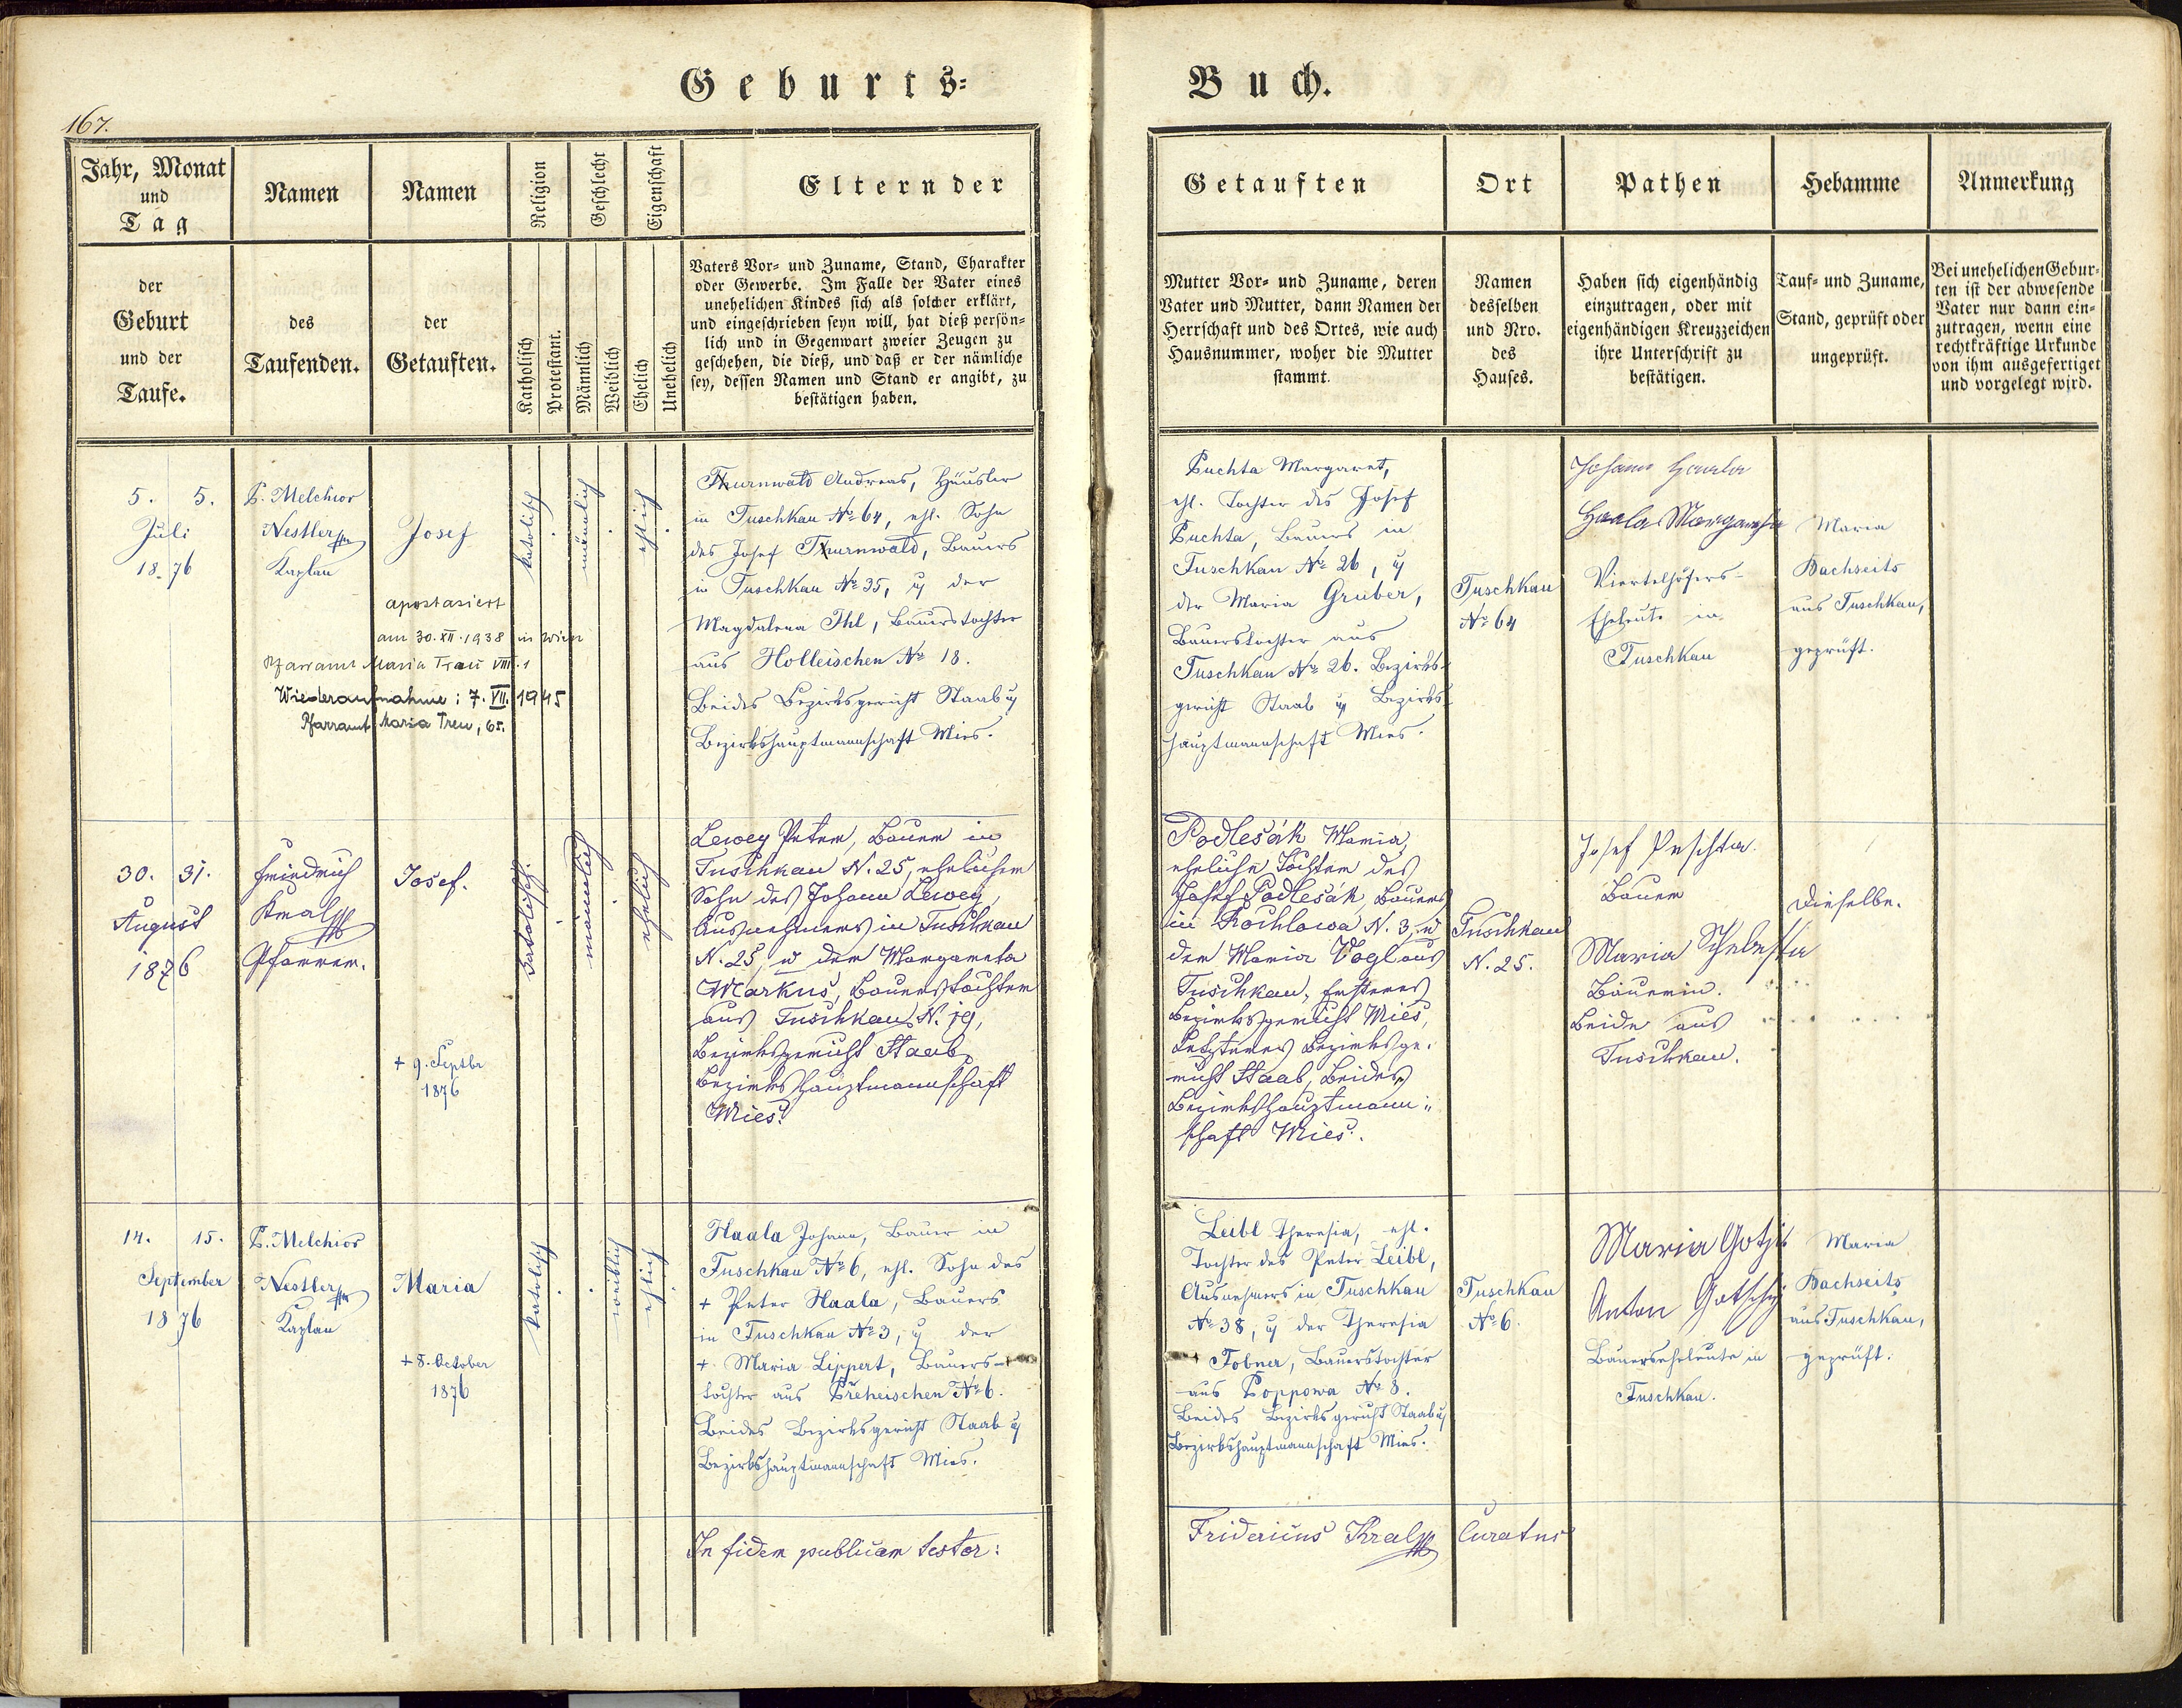 Geburts=
Buch.
167.
Jahr, Monat
und
Tag
Namen
Namen
Religion
Geschlecht
Eigenschaft
Eltern der
der
Geburt
und der
Taufe.
des
Taufenden.
der
Getauften.
Katholisch
Protestant.
Männlich
Weiblich
Ehelich
Unehelich
Vaters Vor= und Zuname, Stand, Charakter
oder Gewerbe. Im Falle der Vater eines
unehelichen Kindes sich als solcher erklärt,
und eingeschrieben seyn will, hat dieß persön=
lich und in Gegenwart zweier Zeugen zu
geschehen, die dieß, und daß er der nämliche
sey, dessen Namen und Stand er angibt, zu
bestätigen haben.
Getauften
Ort
Pathen
Hebamme
Anmerkung
Mutter Vor= und Zuname, deren
Vater und Mutter, dann Namen der
Herrschaft und des Ortes, wie auch
Hausnummer, woher die Mutter
stammt.
Namen
desselben
und Nro.
des
Hauses.
Haben sich eigenhändig
einzutragen, oder mit
eigenhändigen Kreuzzeichen
ihre Unterschrift zu
bestätigen.
Tauf= und Zuname,
Stand, geprüft oder
ungeprüft.
Bei unehelichen Gebur=
ten ist der abwesende
Vater nur dann ein=
zutragen, wenn eine
rechtkräftige Urkunde
von ihm ausgefertiget
und vorgelegt wird.
5. 5.
Juli
1876
P. Melchior
Nestler
Kaplan
Josef
apostasiert
am 30.XII.1938 in Wien
Pfarramt Maria Treu VIII.1
Wiederaufnahme: 7.VII.1945
Pfarramt Maria Treu, 65.
katolisch
männlich
ehlich
Thurnwald Andreas, Häusler
in Tuschkau No 64, ehl. Sohn
des Josef Thurnwald, Bauers
in Tuschkau No 35, u der
Magdalena Ihl, Bauerstochter
aus Holleischen No 18.
Beides Bezirksgericht Staab u
Bezirkshauptmannschaft Mies.
Puchta Margaret,
ehl. Tochter des Josef
Puchta, Bauers in
Tuschkau No 26, u
der Maria Gruber,
Bauerstochter aus
Tuschkau No 26. Bezirks-
gericht Staab u Bezirks-
hauptmannschaft Mies.
Tuschkau
No 64
Johann Haala
Haala Margaretha
Viertelhöfers-
Eheleute in
Tuschkau
Maria
Bachseits
aus Tuschkau,
geprüft.
30. 31.
August
1876
Friedrich
Kral
Pfarrer.
Josef.
+ 9. Septbr
1876
katolisch.
männlich
ehelich
Lewey Peter, Bauer in
Tuschkau N. 25, ehelicher
Sohn des Johann Lewey,
Ausnehmers in Tuschkau
N. 25, u der Margareta
Markus, Bauerstochter
aus Tuschkau N. 19,
Bezirksgericht Staab,
Bezirkshauptmannschaft
Mies.
Podlesák Maria,
eheliche Tochter des
Josef Podlesák, Bauers
in Rochlowa N. 3, u
der Maria Vogl aus
Tuschkau, Ersteres
Bezirksgericht Mies,
Letzteres Bezirksge-
richt Staab, Beides
Bezirkshauptmann=
schaft Mies.
Tuschkau
N. 25.
Josef Puschta.
Bauer
Maria Schebesta
Bäuerin.
Beide aus
Tuschkau.
Dieselbe.
14. 15.
September
1876
P. Melchior
Nestler
Kaplan
Maria
+ 8. October
1876
katolisch
weiblich
ehlich
Haala Johann, Bauer in
Tuschkau No 6, ehl. Sohn des
+ Peter Haala, Bauers
in Tuschkau No 3, u der
+ Maria Lippert, Bauers-
tochter aus Přeheischen No 6.
Beides Bezirksgericht Staab u
Bezirkshauptmannschaft Mies.
Leibl Theresia, ehl.
Tochter des Peter Leibl,
Ausnehmers in Tuschkau
No 38, u der Theresia
Tobner, Bauerstochter
aus Poppowa No 8.
Beides Bezirksgericht Staab u
Bezirkshauptmannschaft Mies.
Tuschkau
No 6.
Maria Gotschi
Anton Gotschy
Bauerseheleute in
Tuschkau.
Maria
Bachseits
aus Tuschkau,
geprüft.
In fidem publicam testor:
Fridericus Kral
Curatus